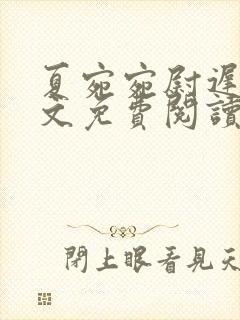 夏宛宛尉遲
文免費閱讀
閉上眼看見天